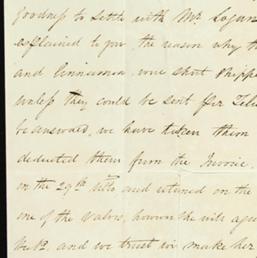 goodness to settle with Mr. Logan
explained to you the reason why th
and Cinnamon were short shippe
unless they could be sent per
be answered, we have taken them
deducted them from the Invoice.
on the 29th Ulto and returned on the
one of the Valves, however she will agai
and we trust will make her